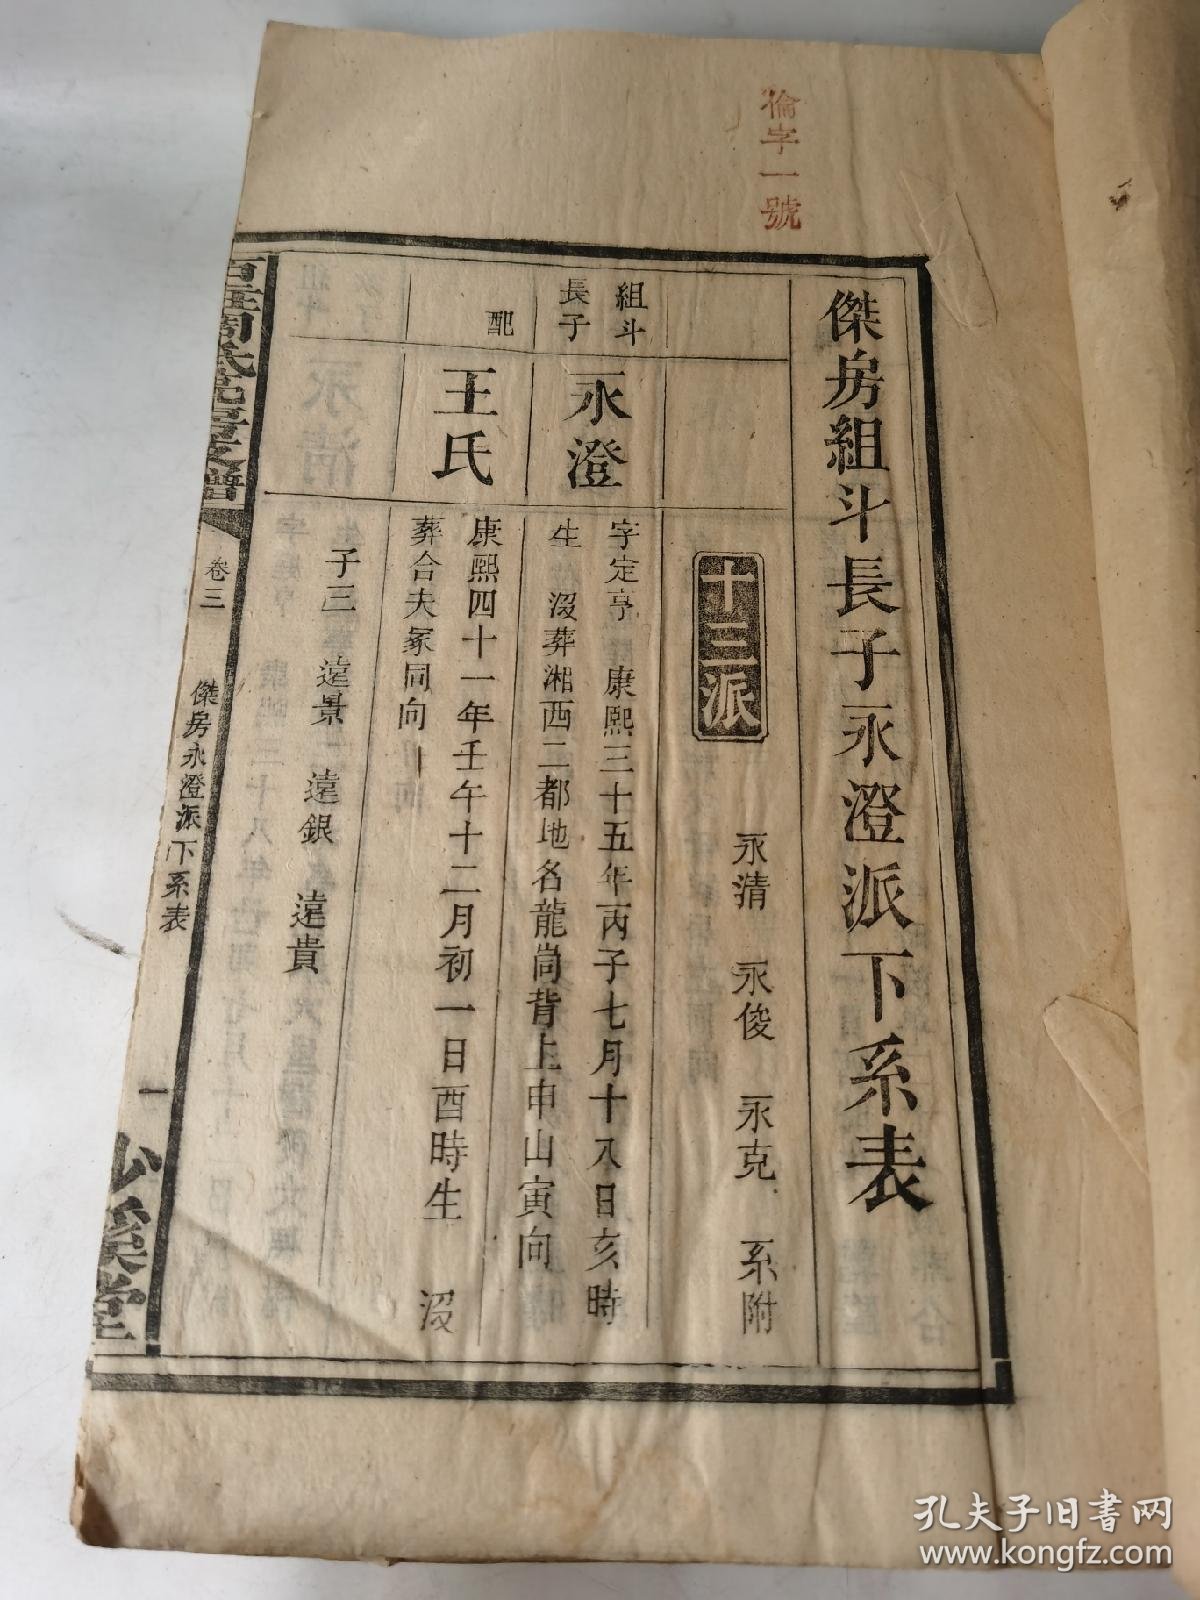 倫字一號
傑房組斗長子永澄派下系表
十三派
永清 永俊 永克 系附
組斗
長子
永澄
字定亭 康熙三十五年丙子七月十八日亥時
生 没葬湘西二都地名龍崗背上申山寅向
配
王氏
康熙四十一年壬午十二月初一日酉時生 没
葬合夫冢同向
子三 遠景 遠銀 遠貴
周氏
支譜
卷三
傑房永澄派下系表
一
孔夫子旧书网
www.kongfz.com